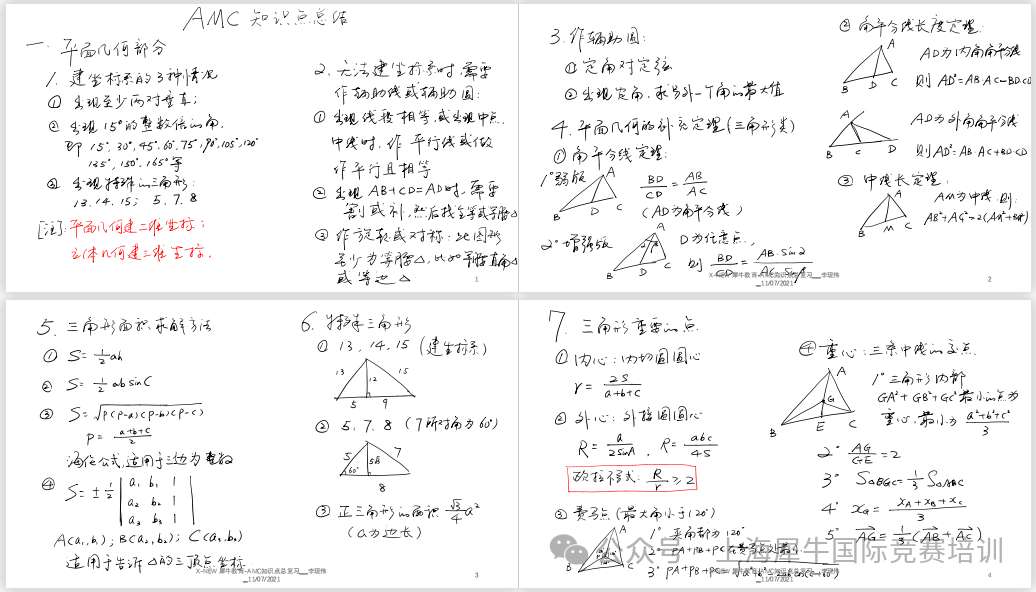 AMC 知识点总结
一. 平面几何部分
1. 建坐标系的3种情况
① 出现至少两对垂直;
② 出现15°的整数倍的角,
即 15°, 30°, 45°, 60°, 75°, 90°, 105°, 120°
135°, 150°, 165° 等
③ 出现特殊的三角形:
13. 14. 15; 5. 7. 8
[注]: 平面几何建二维坐标;
立体几何建三维坐标.
2. 无法建坐标系时, 需要
作辅助线或辅助圆:
① 出现线段相等, 或出现中点,
中线时, 作平行线或做
作平行且相等
② 出现 AB+CD=AD时, 需要
割或补, 然后找全等或等腰△
③ 作旋转或对称: 此图形
至少为等腰△, 比如等腰直角△
或等边△
1
3. 作辅助圆:
① 定角对定弦
② 出现定角, 求另外一个角的最大值
4. 平面几何的补充定理 (三角形类)
① 角平分线定理:
1° 弱版
A
B D C
BD/CD = AB/AC
(AD为角平分线)
2° 增强版
A
B D C
D为任意点,
则 BD/CD = AB·sin2/AC·sin1
② 角平分线长度定理:
A
B D C
AD为内角角平分线
则 AD²=AB·AC-BD·CD
A
B C D
AD为外角角平分线
则 AD²=AB·AC+BD·CD
③ 中线长定理,
A
B M C
AM为中线, 则:
X-NEW 犀牛教育-AMC知识点总复习__李现伟
_11/07/2021
2
5. 三角形面积求解方法
① S=1/2 ah
② S=1/2 ab sinC
③ S=√P(P-a)(P-b)(P-c)
P= a+b+c/2
海伦公式, 适用于三边为整数
④ S=±1/2
a₁ b₁ 1
a₂ b₂ 1
a₃ b₃ 1
A(a₁,b₁); B(a₂,b₂); C(a₃,b₃)
适用于告诉△的三顶点坐标
6. 特殊三角形
① 13, 14, 15 (建坐标系)
13 12 15
5 9
② 5. 7. 8 (7所对角为60°)
5 7
60°
8
③ 正三角形的面积 √3/4 a²
(a为边长)
X-NEW 犀牛教育-AMC知识点总复习__李现伟
_11/07/2021
3
7. 三角形重要的点
① 内心: 内切圆圆心
r= 2S/a+b+c
② 外心: 外接圆圆心
R= a/2sinA , R= abc/4S
欧拉不等式: R/r ≥2
③ 费马点 (最大角小于120°)
A
B
1° 夹角都为120°
2° PA+PB+PC
3° PA+PB+PC=
④ 重心: 三条中线的交点
A
G
B E C
1° 三角形内部
GA²+GB²+GC²最小的点为
重心, 最小为 a²+b²+c²/3
2° AG/GE=2
3° S△BGC=1/3 S△ABC
4° xG= xA+xB+xC/3
5° AG=1/3(AB+AC)
公众号 · 上海犀牛国际竞赛培训
X-NEW 犀牛教育-AMC知识点总复习__李现伟
_11/07/2021
4